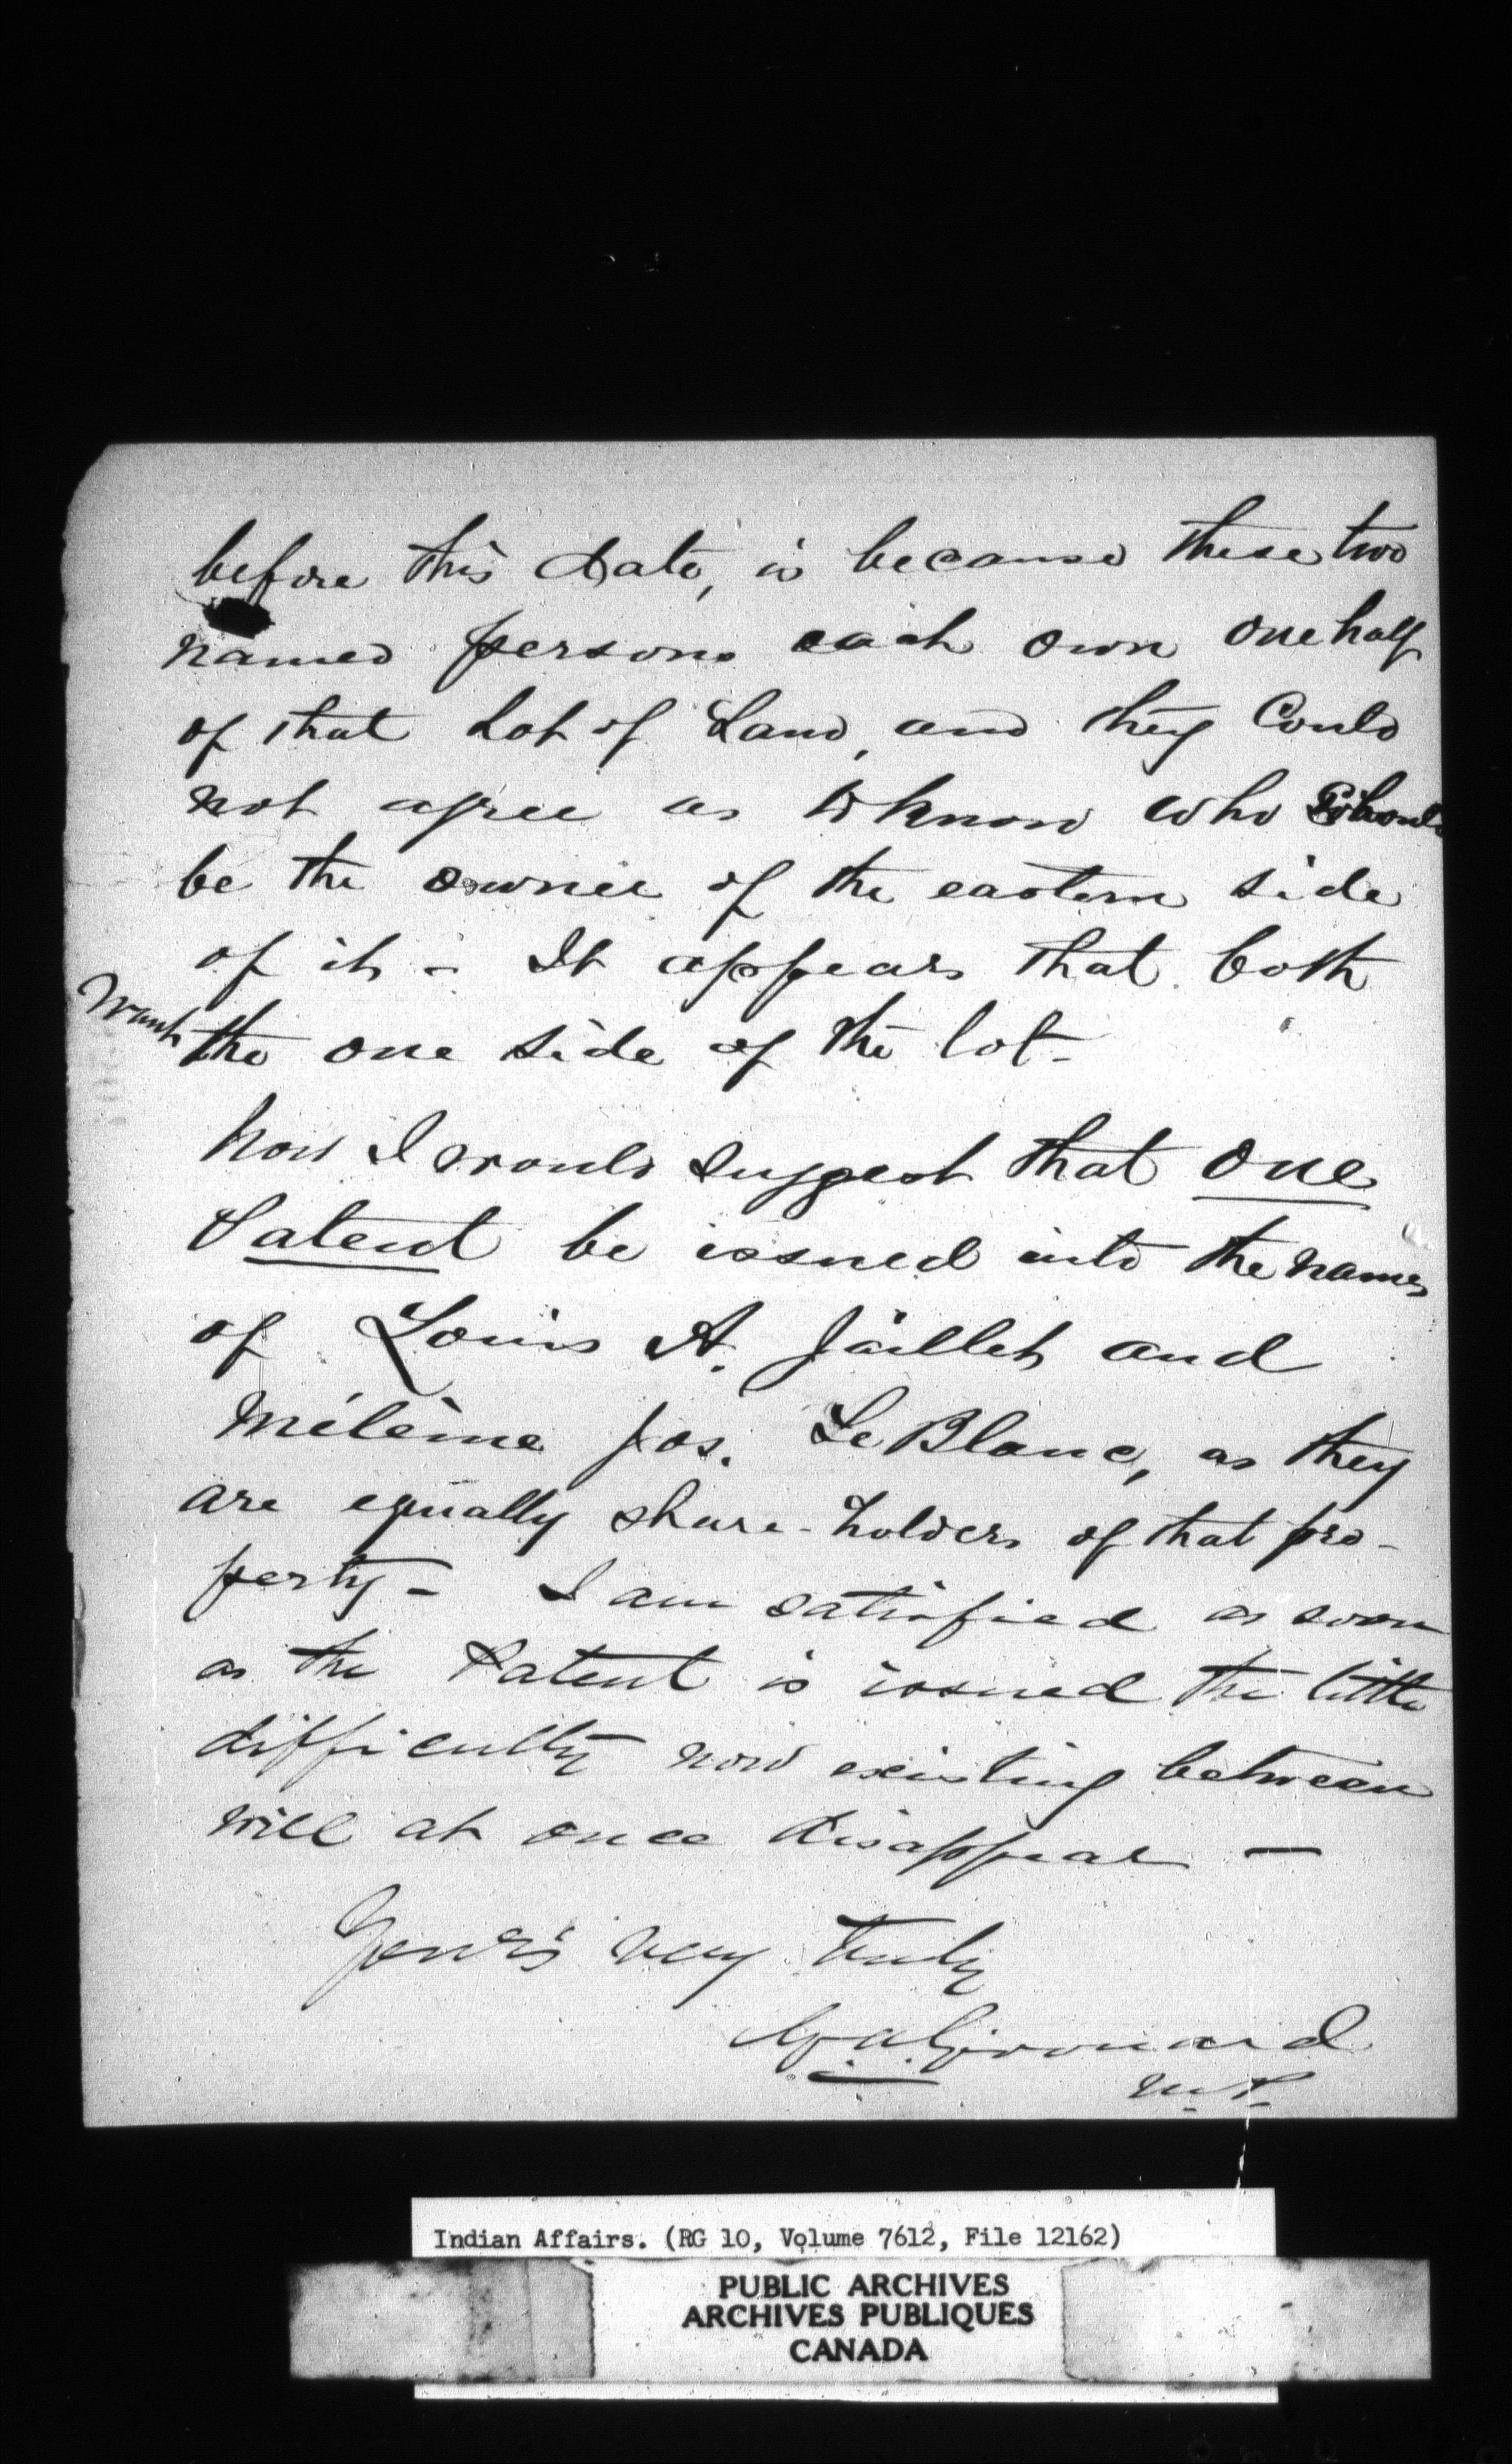 before this date, is because these two
named persons each own one half
of that Lot of Land, and they Could
not agree as to know who should
be the owner of the eastern side
of it - It appears that both
want the one side of the lot -
Now I would suggest that one
Patent be issued into the names
of Louis A. Jaillet and
Mélème Jos. LeBlanc, as they
are equally share-holders of that pro-
perty - I am satisfied as soon
as the Patent is issued the little
difficulty now existing between
will at once disappear —
Yours very truly
Girouard
M.P.
Indian Affairs. (RG 10, Volume 7612, File 12162)
PUBLIC ARCHIVES
ARCHIVES PUBLIQUES
CANADA